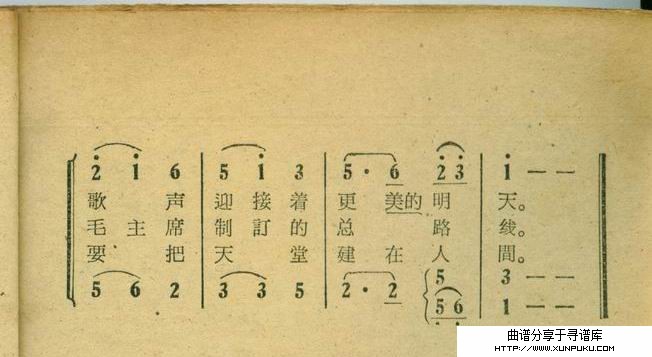 2̇ 1̇ 6 | 5 1̇ 3 | 5· 6 2̇3̇ | 1̇ — —
歌 声 迎 接 着 更 美的 明 天。
毛 主 席 制 訂 的 总 路 线。
要 把 天 堂 建 在 人 間。
5 6 2 | 3 3 5 | 2· 2 5 | 3 — —
5̣6̣ | 1 — —
曲谱分享于寻谱库
HTTP://WWW.XUNPUKU.COM